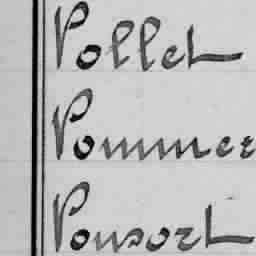 Pollet
Pommer
Ponsort